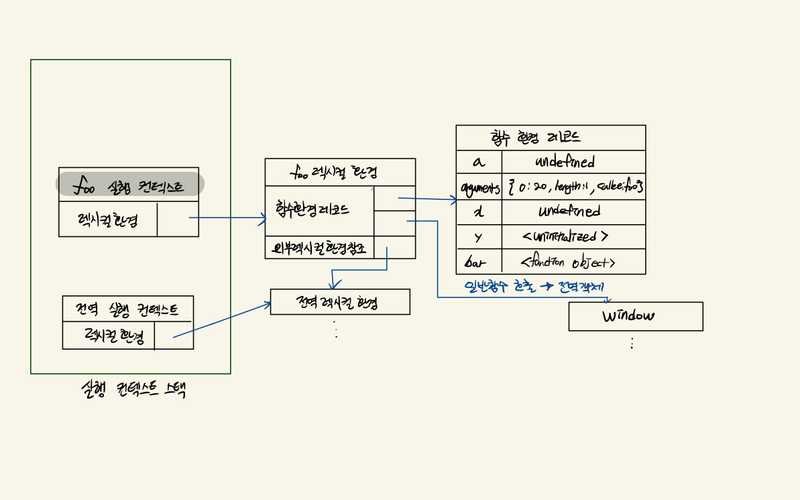 foo 실행 컨텍스트
렉시컬 환경
전역 실행 컨텍스트
렉시컬 환경
실행 컨텍스트 스택
foo 렉시컬 환경
함수 환경 레코드
외부 렉시컬 환경 참조
전역 렉시컬 환경
함수 환경 레코드
a undefined
arguments { 0: 20, length: 1, callee: foo }
x undefined
y <uninitialized>
bar <function object>
일반 함수 호출 → 전역 객체
window